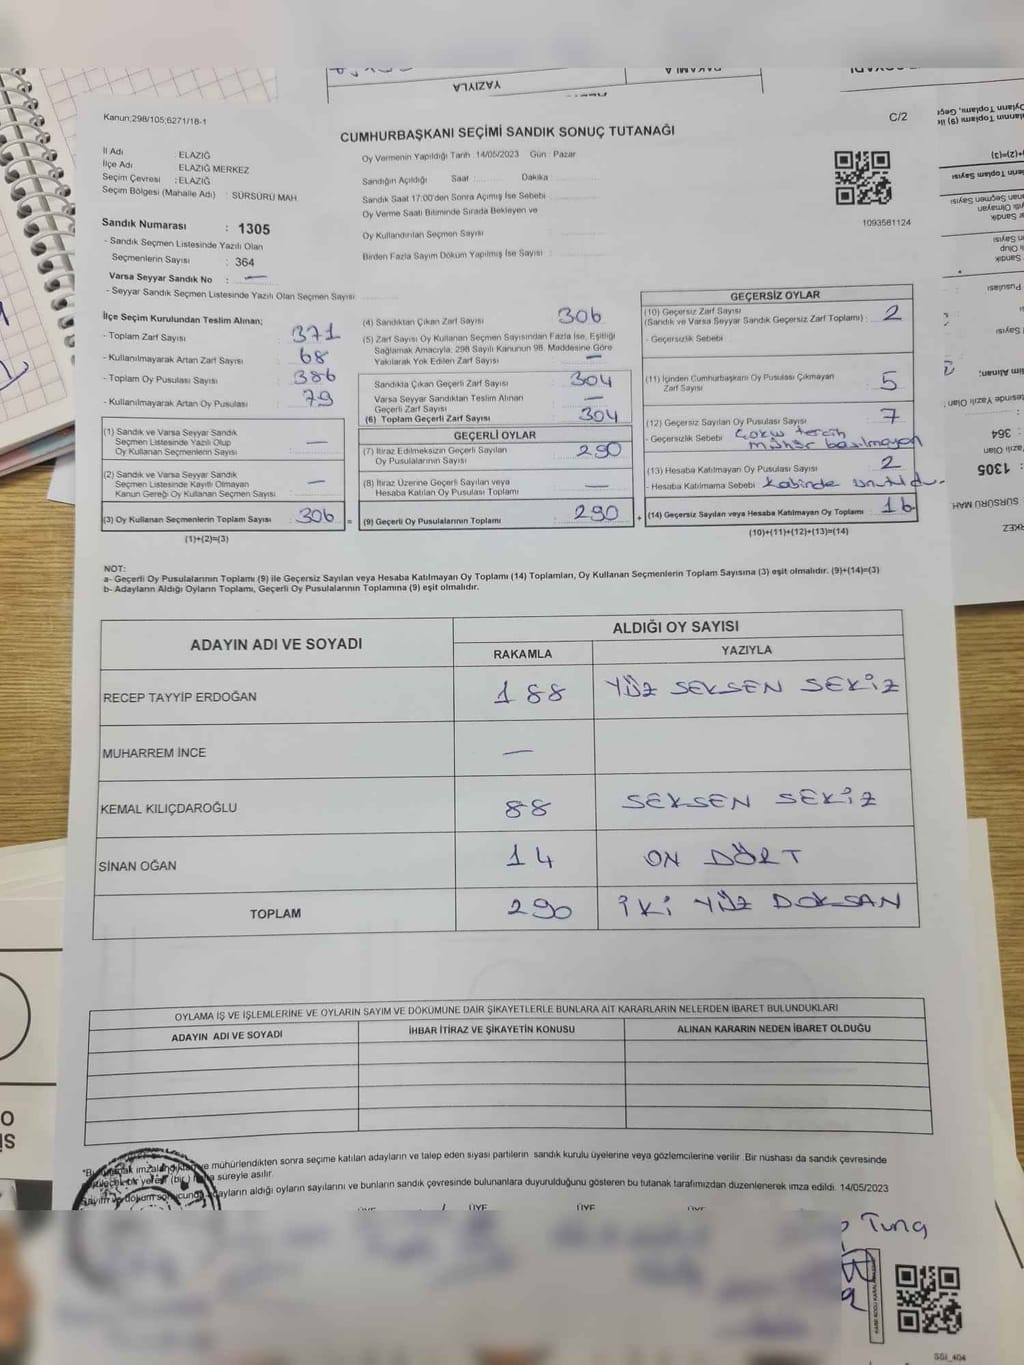 YAZIYLA
Kanun:298/105;6271/18-1
C/2
CUMHURBAŞKANI SEÇİMİ SANDIK SONUÇ TUTANAĞI
İl Adı : ELAZIĞ
İlçe Adı : ELAZIĞ MERKEZ
Seçim Çevresi : ELAZIĞ
Seçim Bölgesi (Mahalle Adı) : SÜRSÜRÜ MAH
Oy Vermenin Yapıldığı Tarih : 14/05/2023 Gün : Pazar
Sandığın Açıldığı Saat : Dakika :
Sandık Saat 17:00'den Sonra Açımış İse Sebebi :
Oy Verme Saati Bitiminde Sırada Bekleyen ve
Oy Kullandırılan Seçmen Sayısı
Birden Fazla Sayım Döküm Yapılmış İse Sayısı :
1093561124
Sandık Numarası : 1305
- Sandık Seçmen Listesinde Yazılı Olan
Seçmenlerin Sayısı : 364
Varsa Seyyar Sandık No : —
- Seyyar Sandık Seçmen Listesinde Yazılı Olan Seçmen Sayısı
İlçe Seçim Kurulundan Teslim Alınan;
- Toplam Zarf Sayısı : 371
- Kullanılmayarak Artan Zarf Sayısı : 68
- Toplam Oy Pusulası Sayısı : 386
- Kullanılmayarak Artan Oy Pusulası : 79
(1) Sandık ve Varsa Seyyar Sandık
Seçmen Listesinde Yazılı Olup
Oy Kullanan Seçmenlerin Sayısı : —
(2) Sandık ve Varsa Seyyar Sandık
Seçmen Listesinde Kayıtlı Olmayan
Kanun Gereği Oy Kullanan Seçmen Sayısı : —
(3) Oy Kullanan Seçmenlerin Toplam Sayısı : 306 =
(1)+(2)=(3)
(4) Sandıktan Çıkan Zarf Sayısı : 306
(5) Zarf Sayısı Oy Kullanan Seçmen Sayısından Fazla İse, Eşitliği
Sağlamak Amacıyla; 298 Sayılı Kanunun 98. Maddesine Göre
Yakılarak Yok Edilen Zarf Sayısı : —
Sandıkta Çıkan Geçerli Zarf Sayısı : 304
Varsa Seyyar Sandıktan Teslim Alınan
Geçerli Zarf Sayısı : —
(6) Toplam Geçerli Zarf Sayısı : 304
GEÇERLİ OYLAR
(7) İtiraz Edilmeksizin Geçerli Sayılan
Oy Pusulalarının Sayısı : 290
(8) İtiraz Üzerine Geçerli Sayılan veya
Hesaba Katılan Oy Pusulası Toplamı : —
(9) Geçerli Oy Pusulalarının Toplamı : 290 +
GEÇERSİZ OYLAR
(10) Geçersiz Zarf Sayısı
(Sandık ve Varsa Seyyar Sandık Geçersiz Zarf Toplamı) : 2
- Geçersizlik Sebebi
(11) İçinden Cumhurbaşkanı Oy Pusulası Çıkmayan
Zarf Sayısı : 5
(12) Geçersiz Sayılan Oy Pusulası Sayısı : 7
- Geçersizlik Sebebi : Çoklu tercih
mühür basılmayan
(13) Hesaba Katılmayan Oy Pusulası Sayısı : 2
- Hesaba Katılmama Sebebi : Kabinde unutuldu.
(14) Geçersiz Sayılan veya Hesaba Katılmayan Oy Toplamı : 16
(10)+(11)+(12)+(13)=(14)
NOT:
a- Geçerli Oy Pusulalarının Toplamı (9) ile Geçersiz Sayılan veya Hesaba Katılmayan Oy Toplamı (14) Toplamları, Oy Kullanan Seçmenlerin Toplam Sayısına (3) eşit olmalıdır. (9)+(14)=(3)
b- Adayların Aldığı Oyların Toplamı, Geçerli Oy Pusulalarının Toplamına (9) eşit olmalıdır.
ADAYIN ADI VE SOYADI
ALDIĞI OY SAYISI
RAKAMLA YAZIYLA
RECEP TAYYİP ERDOĞAN 188 YÜZ SEKSEN SEKİZ
MUHARREM İNCE —
KEMAL KILIÇDAROĞLU 88 SEKSEN SEKİZ
SİNAN OĞAN 14 ON DÖRT
TOPLAM 290 İKİ YÜZ DOKSAN
OYLAMA İŞ VE İŞLEMLERİNE VE OYLARIN SAYIM VE DÖKÜMÜNE DAİR ŞİKAYETLERLE BUNLARA AİT KARARLARIN NELERDEN İBARET BULUNDUKLARI
ADAYIN ADI VE SOYADI İHBAR İTİRAZ VE ŞİKAYETİN KONUSU ALINAN KARARIN NEDEN İBARET OLDUĞU
mühürlendikten sonra seçime katılan adayların ve talep eden siyasi partilerin sandık kurulu üyelerine veya gözlemcilerine verilir .Bir nüshası da sandık çevresinde
süreyle asılır.
adayların aldığı oyların sayılarını ve bunların sandık çevresinde bulunanlara duyurulduğunu gösteren bu tutanak tarafımızdan düzenlenerek imza edildi. 14/05/2023
ÜYE ÜYE ÜYE ÜYE
Tunç
SSI_404